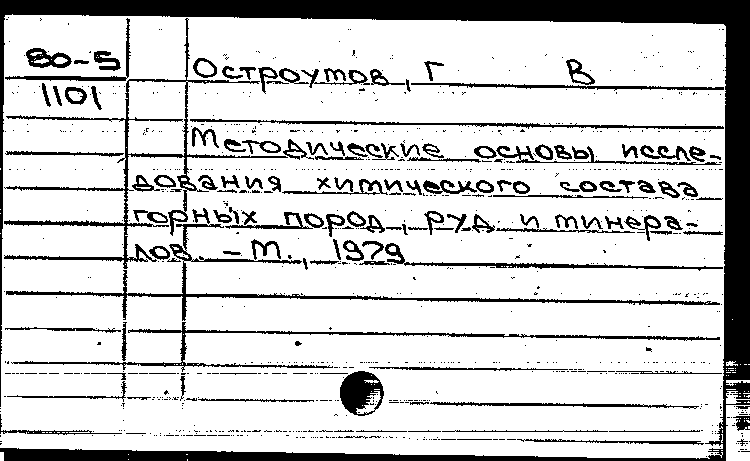 80-5
1101
Остроумов, Г В
Методические основы иссле-
дования химического состава
горных пород, руд и минера-
лов. - М., 1979